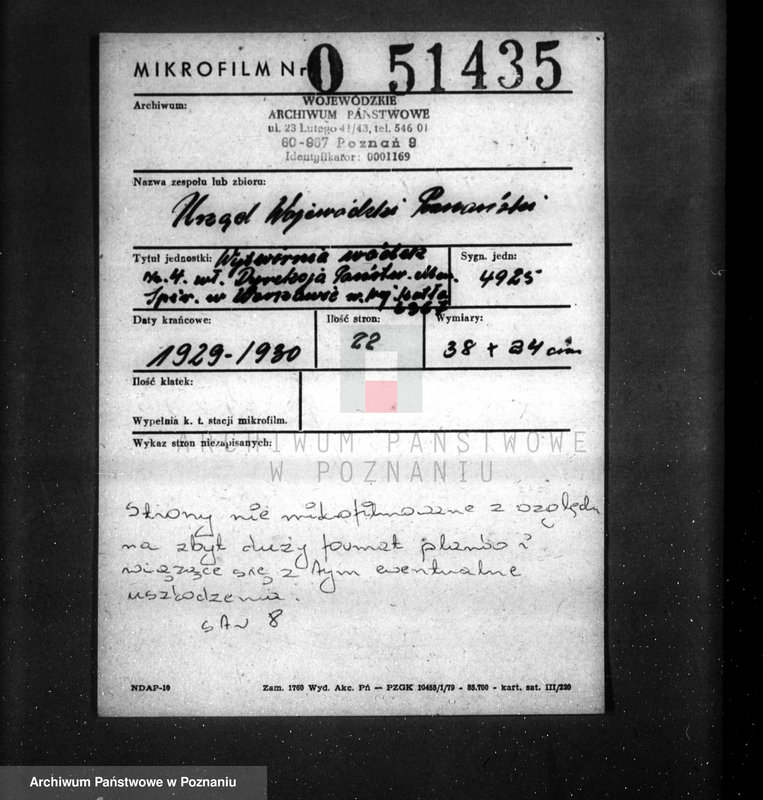 MIKROFILM Nr O 51435
Archiwum:
WOJEWÓDZKIE
ARCHIWUM PAŃSTWOWE
ul. 23 Lutego 41/43, tel. 546 01
60-967 Poznań 9
Identyfikator: 0001169
Nazwa zespołu lub zbioru:
Urząd Wojewódzki Poznański
Tytuł jednostki: Wytwórnia wódek
Nr. 4. wł. Dyrekcja Państw. Mon.
Spir. w Warszawie
Sygn. jedn:
4925
Daty krańcowe:
1929-1930
Ilość stron:
22
Wymiary:
38 + 24 cm
Ilość klatek:
Wypełnia k. t. stacji mikrofilm.
Wykaz stron niezapisanych:
ARCHIWUM PAŃSTWOWE
W POZNANIU
Strony nie mikrofilmowane z względu
na zbyt duży format planów i
wiążące się z tym ewentualne
uszkodzenia.
8
NDAP-10
Zam. 1760 Wyd. Akc. Pń — PZGK 10455/1/79 - 55.700 - kart. sat. III/220
Archiwum Państwowe w Poznaniu